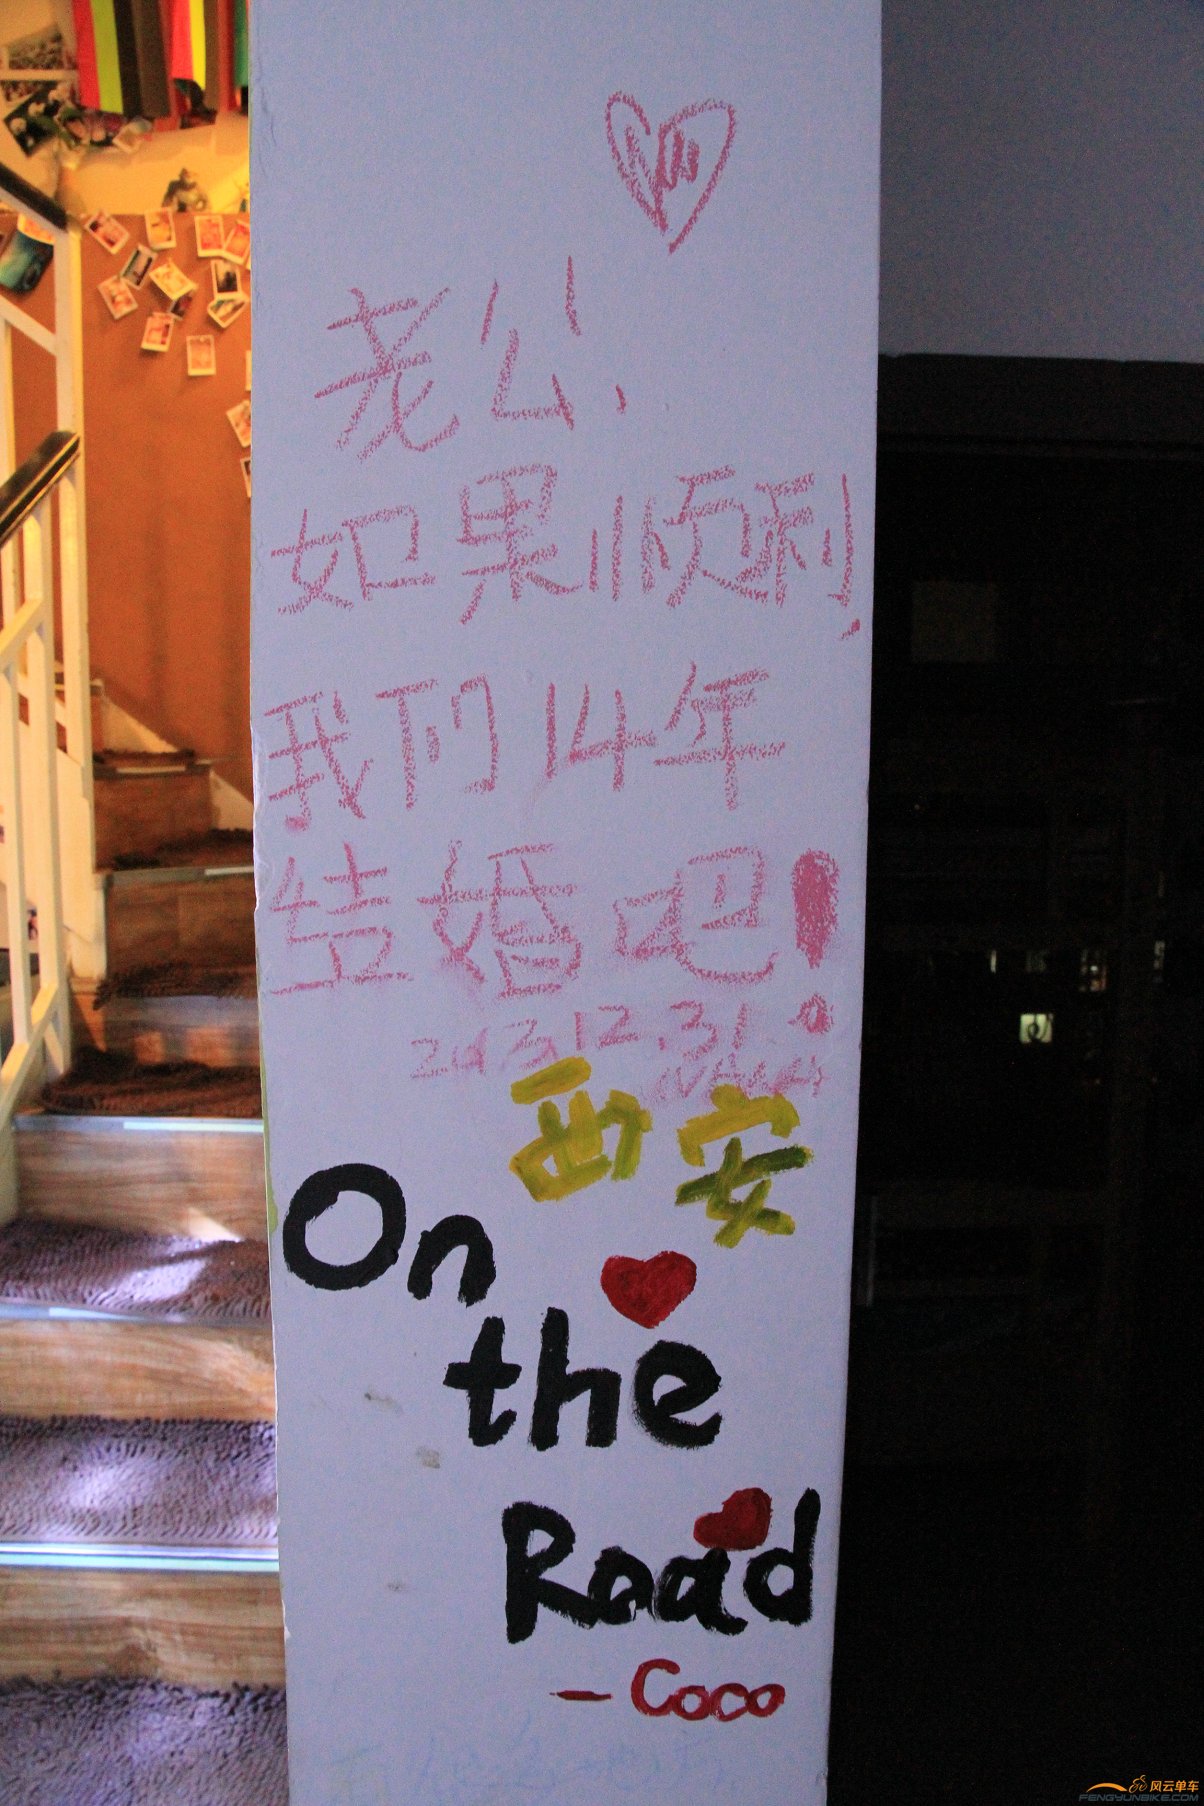 老公!
如果顺利,
我们14年
结婚吧!
2013.12.31
西安
On
the
Road
- Coco
风云单车
FENGYUNBIKE.COM